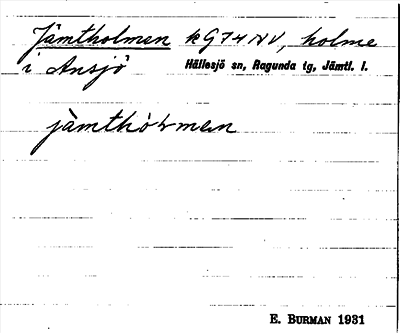 Jämtholmen kG74NV, holme
i Ansjö Hällesjö sn, Ragunda tg, Jämtl. l.
E. BURMAN 1931